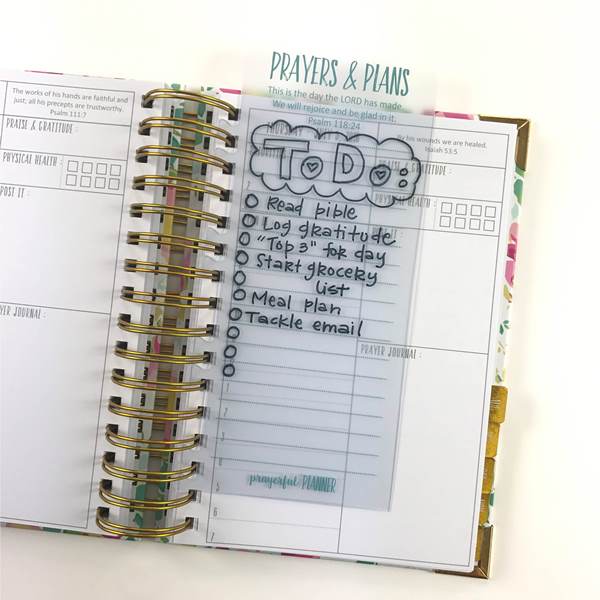 The works of his hands are faithful and
just; all his precepts are trustworthy.
Psalm 111:7
PRAISE & GRATITUDE :
PHYSICAL HEALTH :
POST IT :
YER JOURNAL :
PRAYERS & PLANS
This is the day the LORD has made.
We will rejoice and be glad in it.
Psalm 118:24
By his wounds we are healed.
Isaiah 53:5
PRAISE & GRATITUDE :
PHYSICAL HEALTH :
ToDo:
Read bible
Log gratitude
"Top 3" for day
Start grocery
list
Meal plan
Tackle email
PRAYER JOURNAL :
1
2
3
4
5
6
7
prayerful PLANNER